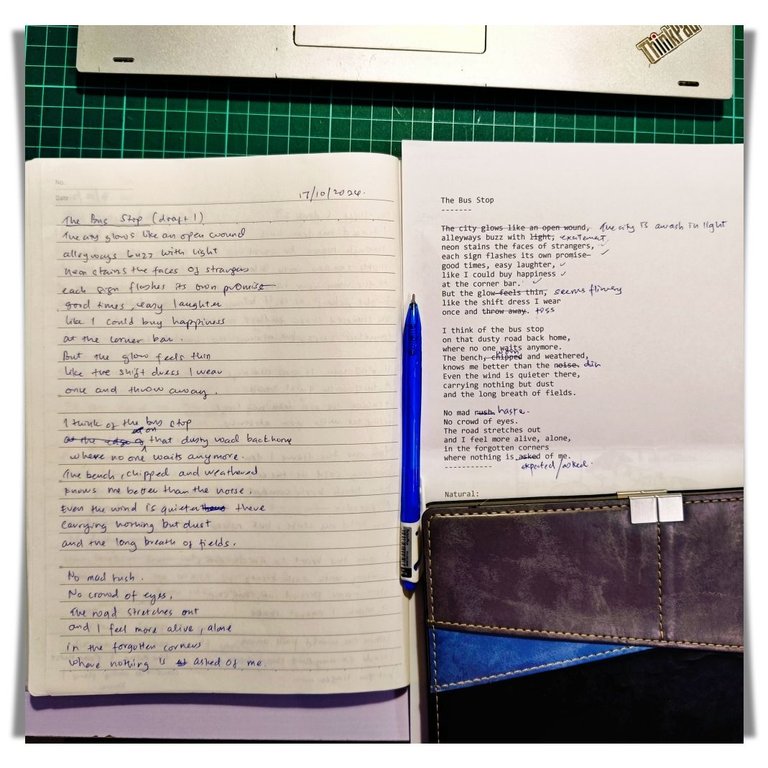 ThinkPad
No.
Date
17/10/2024.
The Bus Stop (draft 1)
The city glows like an open wound
alleyways buzz with light
neon stains the faces of strangers
each sign flashes its own promise
good times, easy laughter
like I could buy happiness
at the corner bar.
But the glow feels thin
like the shift dress I wear
once and throw away.
I think of the bus stop
at the edge of on that dusty road back home
where no one waits anymore.
The bench, chipped and weathered
knows me better than the noise.
Even the wind is quieter there
carrying nothing but dust
and the long breath of fields.
No mad rush.
No crowd of eyes.
The road stretches out
and I feel more alive, alone
in the forgotten corners
where nothing is asked of me.
The Bus Stop
-------
The city glows like an open wound, The city is awash in light
alleyways buzz with light, excitement.
neon stains the faces of strangers,
each sign flashes its own promise—
good times, easy laughter,
like I could buy happiness
at the corner bar.
But the glow feels thin, seems flimsy
like the shift dress I wear
once and throw away. toss
I think of the bus stop
on that dusty road back home,
where no one waits anymore.
The bench, chipped and weathered,
knows me better than the noise. din
Even the wind is quieter there,
carrying nothing but dust
and the long breath of fields.
No mad rush. haste.
No crowd of eyes.
The road stretches out
and I feel more alive, alone,
in the forgotten corners
where nothing is asked of me.
expected/asked.
-----------
Natural: